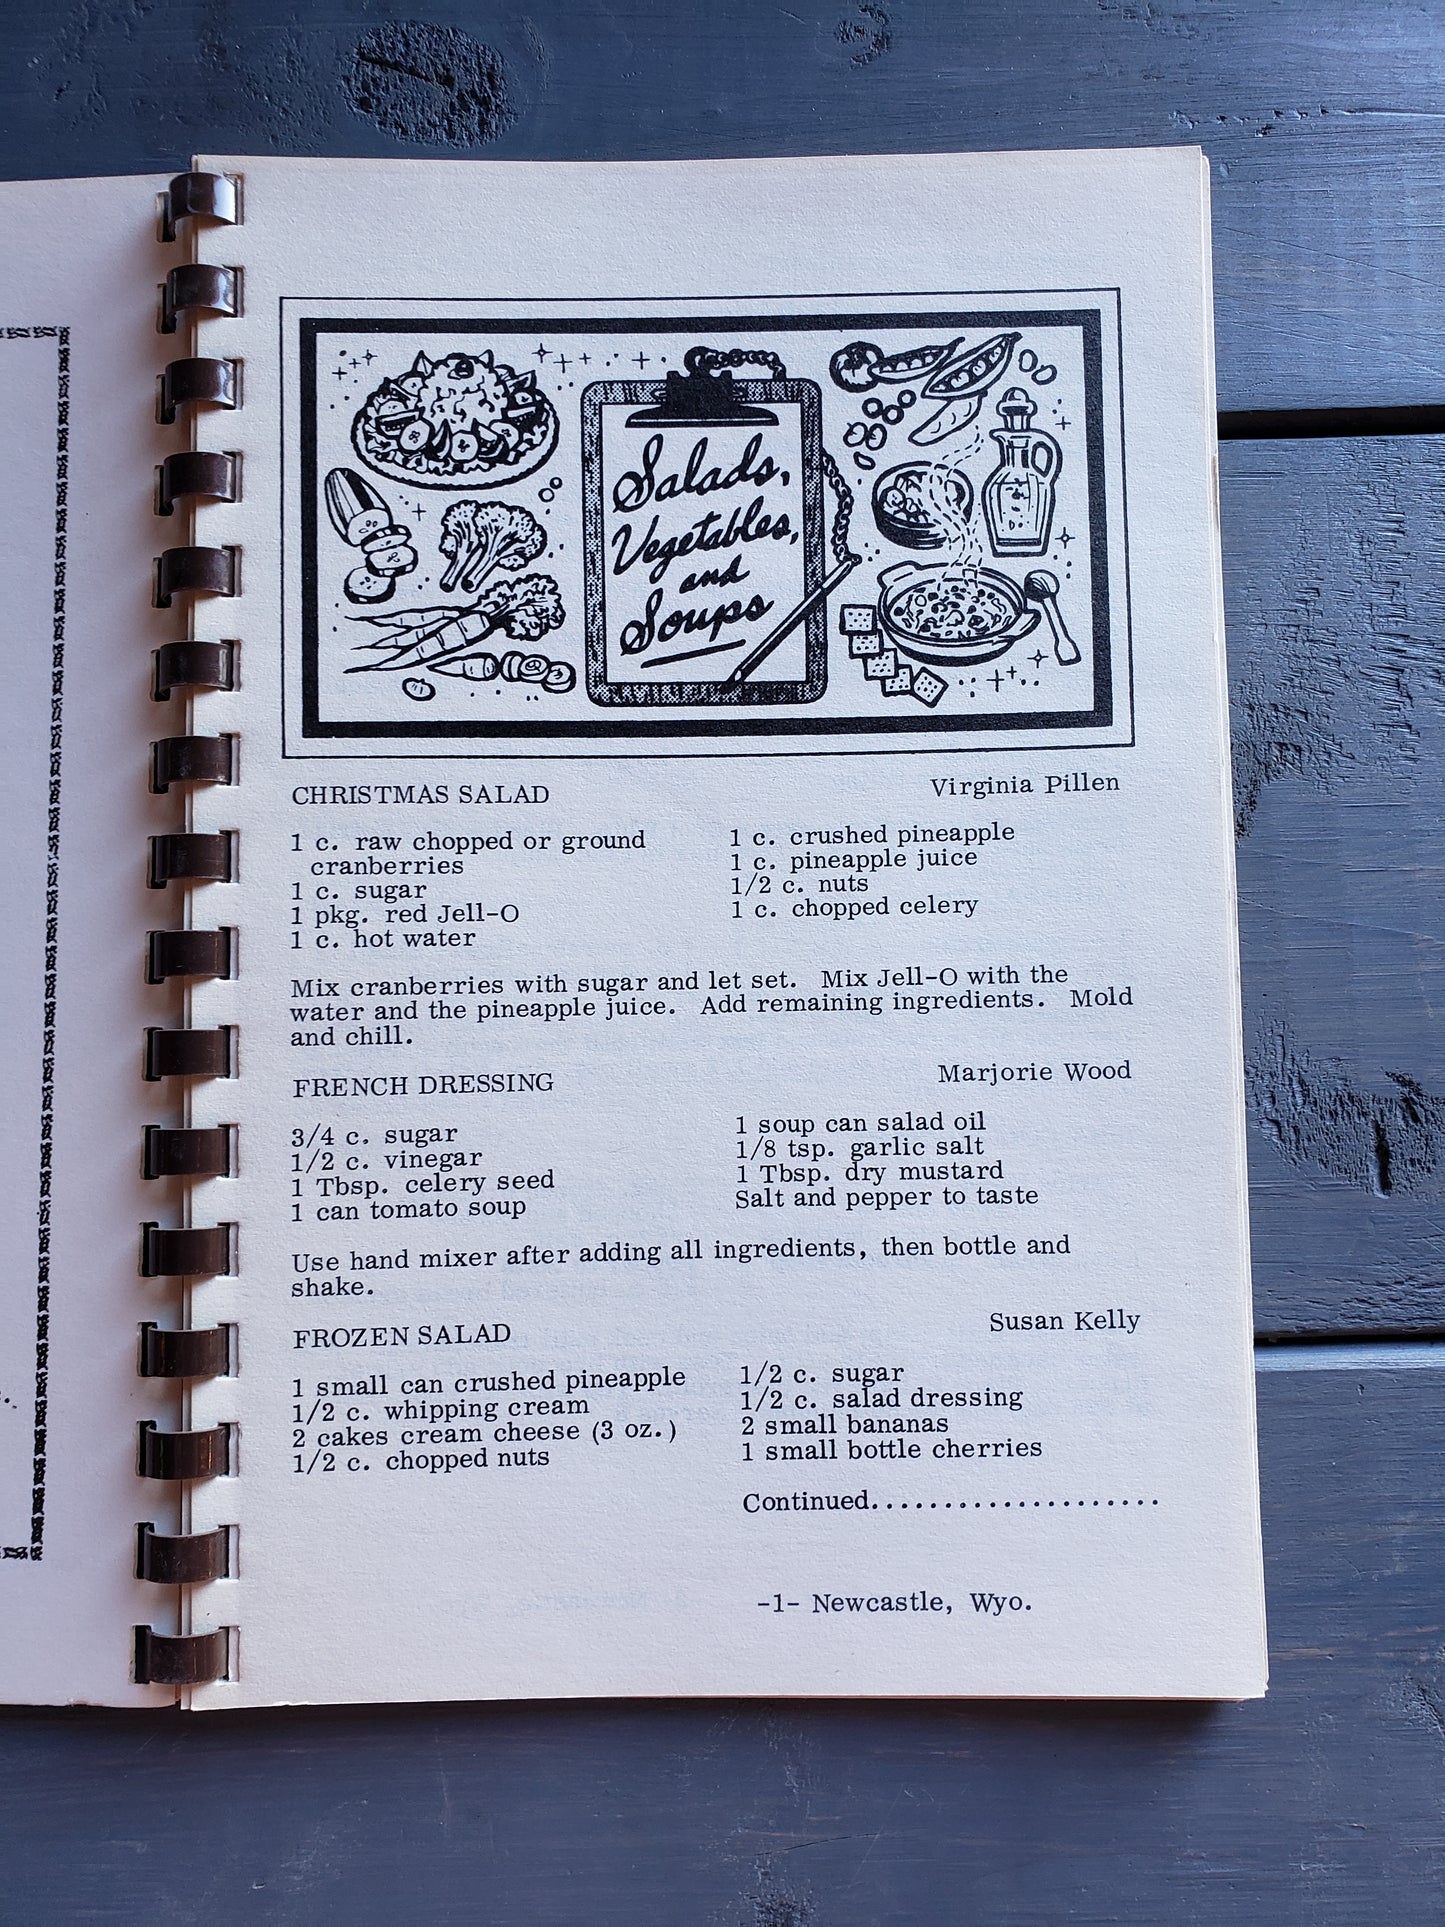 Salads,
Vegetables,
and
Soups
CHRISTMAS SALAD Virginia Pillen
1 c. raw chopped or ground
cranberries
1 c. sugar
1 pkg. red Jell-O
1 c. hot water
1 c. crushed pineapple
1 c. pineapple juice
1/2 c. nuts
1 c. chopped celery
Mix cranberries with sugar and let set. Mix Jell-O with the
water and the pineapple juice. Add remaining ingredients. Mold
and chill.
FRENCH DRESSING Marjorie Wood
3/4 c. sugar
1/2 c. vinegar
1 Tbsp. celery seed
1 can tomato soup
1 soup can salad oil
1/8 tsp. garlic salt
1 Tbsp. dry mustard
Salt and pepper to taste
Use hand mixer after adding all ingredients, then bottle and
shake.
FROZEN SALAD Susan Kelly
1 small can crushed pineapple
1/2 c. whipping cream
2 cakes cream cheese (3 oz.)
1/2 c. chopped nuts
1/2 c. sugar
1/2 c. salad dressing
2 small bananas
1 small bottle cherries
Continued....................
-1- Newcastle, Wyo.